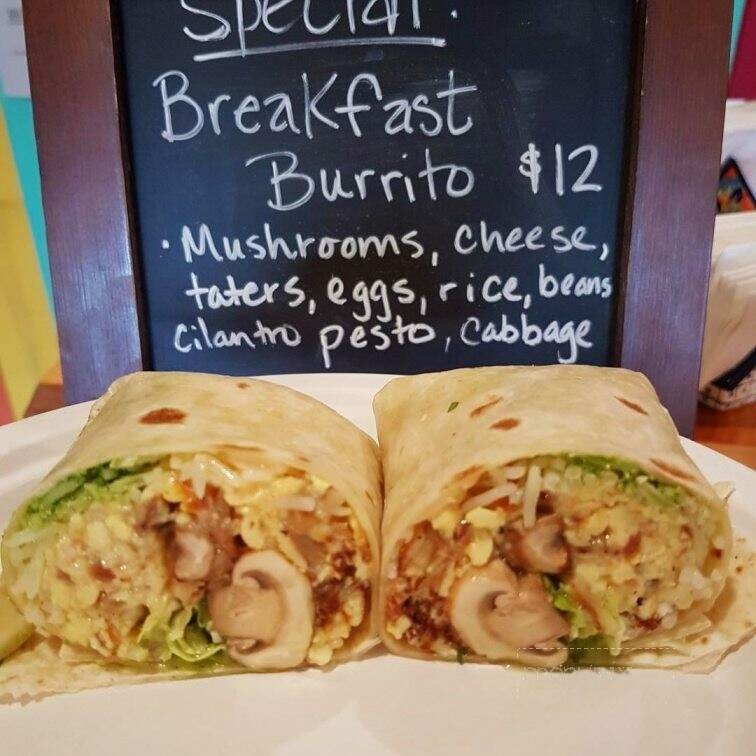 Special:
Breakfast
Burrito $12
• Mushrooms, cheese,
taters, eggs, rice, beans
cilantro pesto, cabbage